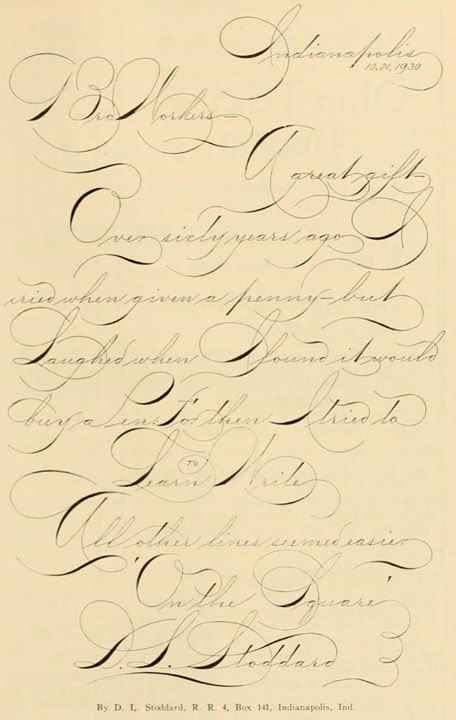 Indianapolis
10.21.1930
Bro Workers—
A great gift—
Over sixty years ago I
cried when given a penny—but
Laughed when I found it would
buy a Pen: For then I tried to
Learn TO Write
All other lines seemed easier
'On the Square'
D. L. Stoddard
By D. L. Stoddard, R. R. 4, Box 141, Indianapolis, Ind.